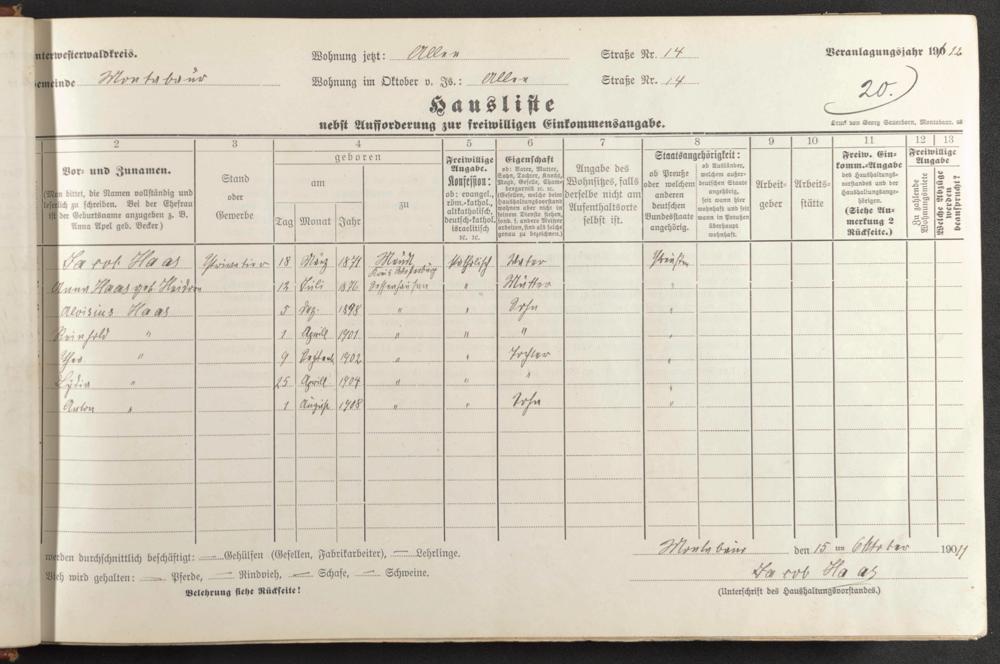 nterwesterwaldkreis.
Wohnung jetzt: Allee Straße Nr. 14
Veranlagungsjahr 1912
emeinde Montabaur
Wohnung im Oktober v. Js.: Allee Straße Nr. 14
20.
Hausliste
nebst Aufforderung zur freiwilligen Einkommensangabe.
Druck von Georg Sauerborn, Montabaur.
2 3 4 5 6 7 8 9 10 11 12 13
Vor- und Zunamen.
(Man bittet, die Namen vollständig und
leserlich zu schreiben. Bei der Ehefrau
ist der Geburtsname anzugeben z. B.
Anna Apel geb. Becker)
Stand
oder
Gewerbe
geboren
am
Tag Monat Jahr
zu
Freiwillige
Angabe.
Konfession:
ob: evangel.,
röm.-kathol.,
altkatholisch,
deutsch-kathol.
israelitisch
ec. ec.
Eigenschaft
ob: Vater, Mutter,
Sohn, Tochter, Knecht,
Magd, Geselle, Cham-
bregarnist ec. ec.
Diejenigen, welche beim
Haushaltungsvorstand
wohnen aber nicht in
seinem Dienste stehen,
sond. b. andere Meister
arbeiten, sind als solche
genau zu bezeichnen.)
Angabe des
Wohnsitzes, falls
derselbe nicht am
Aufenthaltsorte
selbst ist.
Staatsangehörigkeit:
ob Preuße
oder welchem
anderen
deutschen
Bundesstaate
angehörig.
ob Ausländer,
welchem außer-
deutschen Staate
angehörig,
seit wann hier
wohnhaft und seit
wann in Preußen
überhaupt
wohnhaft.
Arbeit-
geber
Arbeits-
stätte
Freiw. Ein-
komm.-Angabe
des Haushaltungs-
vorstandes und der
Haushaltungsange-
hörigen.
(Siehe An-
merkung 2
Rückseite.)
Freiwillige
Angabe
Zu zahlende
Wohnungsmiete
Welche Abzüge
werden
beansprucht?
Jacob Haas Privatier 18 März 1871 Katholisch Vater Preußen
Anna Haas geb 12 Juli 1876 " Mutter "
Aloisius Haas 5 Dez. 1898 " " Sohn "
Reinhold " 1 April 1901 " " " "
Theo " 9 Septemb 1902 " " Tochter "
Lydia " 25 April 1904 " " " "
Anton " 1 August 1908 " " Sohn "
werden durchschnittlich beschäftigt: — Gehülfen (Gesellen, Fabrikarbeiter), — Lehrlinge.
Vieh wird gehalten: — Pferde, — Rindvieh, — Schafe, — Schweine.
Belehrung siehe Rückseite!
Montabaur den 15 ten Oktober 1911
Jacob Haas
(Unterschrift des Haushaltungsvorstandes.)